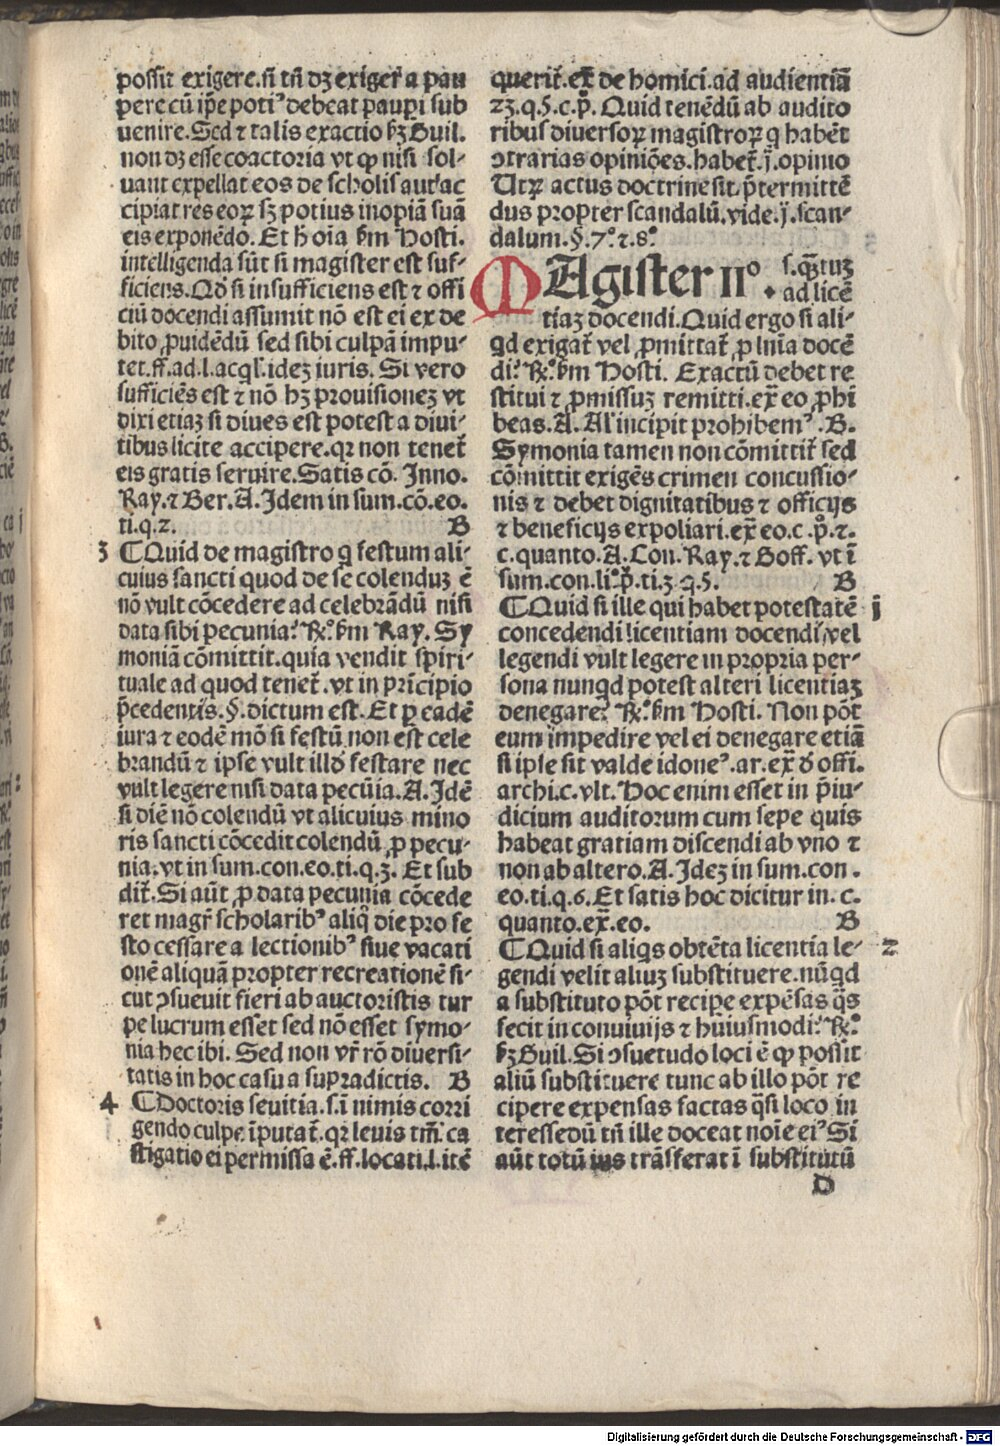 possit exigere.sꝫ tn̄ dꝫ exiger̄ a pau
pere cū ip̄e potiꝰ debeat pauꝑi sub
uenire.Sed ⁊ talis exactio ẜꝫ Guil.
non dꝫ esse coactoria vt ꝙ nisi sol⸗
uant expellat eos de scholis aut ac
cipiat res eoꝝ sꝫ potius inopiā suā
eis exponēdo.Et h̄ oīa ẜm Hosti.
intelligenda sūt si magister est suf⸗
ficiens.Qd̄ si insufficiens est ⁊ offi
ciū docendi assumit nō est ei ex de
bito ꝓuidēdū sed sibi culpā impu⸗
tet.ff.ad.l.acql̄.ideꝫ iuris. Si vero
sufficiēs est ⁊ nō hꝫ prouisioneꝫ vt
dixi etiaꝫ si diues est potest a diui⸗
tibus licite accipere.qꝛ non tenet̄
eis gratis seruire.Satis cō. Inno.
Ray.⁊ Ber.A.Idem in sum.cō.eo.
ti.q.2. B
3 ¶Quid de magistro q̄ festum ali⸗
cuius sancti quod de se colenduꝫ ē
nō vult cōcedere ad celebrādū nisi
data sibi pecunia? ℞. ẜm Ray. Sy
moniā cōmittit.quia vendit spiri⸗
tuale ad quod tenet̄.vt in prīcipio
p̄cedentis.§.dictum est. Et ꝑ eadē
iura ⁊ eodē mō si festū non est cele
brandū ⁊ ipse vult illd̄ festare nec
vult legere nisi data pecūia.A.Idē
si diē nō colendū vt alicuius mino
ris sancti cōcedit colendū ꝓ pecu⸗
nia.vt in sum.con.eo.ti.q.3. Et sub
dit̄.Si aūt ꝓ data pecunia cōcede
ret magr̄ scholaribꝰ aliq̄ die pro fe
sto cessare a lectionibꝰ siue vacati
onē aliquā propter recreationē si⸗
cut ꝯsueuit fieri ab auctoristis tur
pe lucrum esset sed nō esset symo⸗
nia hec ibi. Sed non vr̄ rō diuersi⸗
tatis in hoc casu a supradictis. B
4 ¶Doctoris seuitia.s.ī nimis corri
gendo culpe īputat̄.qꝛ leuis tm̄ ca
stigatio ei permissa ē.ff.locati.l.itē
querit̄.ex̄ de homici.ad audientiā
23.q.5.c.p̄. Quid tenēdū ab audito
ribus diuersoꝝ magistroꝝ q habēt
ꝯtrarias opiniōes.habet̄.j̄.opinio
Utꝝ actus doctrine sit p̄termittē
dus propter scandalū.vide.j̄.scan⸗
dalum.§.7.⁊.8.
MAgister IIº s.q̄ntuꝫ
ad licē
tiaꝫ docendi.Quid ergo si ali⸗
qd exigat̄ vel ꝓmittat̄ ꝓ lnīa docē
di? ℞. ẜm Hosti. Exactū debet re
stitui ⁊ ꝓmissuꝫ remitti.ex̄ eo ꝓhi
beas.A.Al̄ incipit prohibemꝰ.B.
Symonia tamen non cōmittit̄ sed
cōmittit exigēs crimen concussio⸗
nis ⁊ debet dignitatibus ⁊ officijs
⁊ beneficijs expoliari.ex̄ eo.c.p̄.⁊.
c.quanto.A.Con.Ray.⁊ Goff. vt ī
sum.con.li.p̄.ti.3.q.5. B
¶Quid si ille qui habet potestatē j
concedendi licentiam docendi vel
legendi vult legere in propria per⸗
sona nunqd potest alteri licentiaꝫ
denegare? ℞. ẜm Hosti. Non pōt
eum impedire vel ei denegare etiā
si ipse sit valde idoneꝰ.ar.ex̄ d̄ offi.
archi.c.vlt. Hoc enim esset in p̄iu⸗
dicium auditorum cum sepe quis
habeat gratiam discendi ab vno ⁊
non ab altero.A.Ideꝫ in sum.con.
eo.ti.q.6.Et satis hoc dicitur in.c.
quanto.ex̄.eo. B
¶Quid si aliqs obtēta licentia le⸗ 2
gendi velit aliuꝫ substituere.nūqd
a substituto pōt recipe expēsas q̄s
fecit in conuiuijs ⁊ hūiusmodi? ℞.
ẜꝫ Guil.Si ꝯsuetudo loci ē ꝙ possit
aliū substituere tunc ab illo pōt re
cipere expensas factas q̄si loco in
teressedū tn̄ ille doceat noīe eiꝰ Si
aūt totū ius trāsferat ī substitutū
D
Digitalisierung gefördert durch die Deutsche Forschungsgemeinschaft - DFG